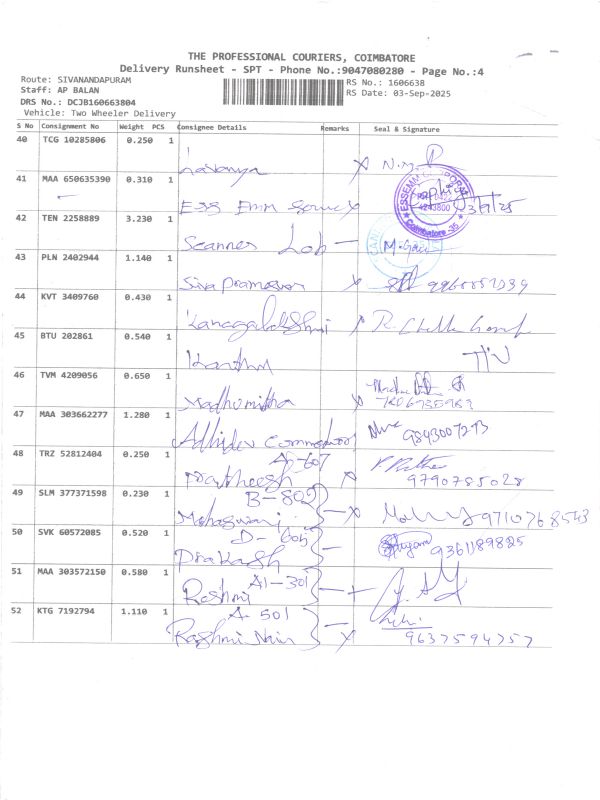 THE PROFESSIONAL COURIERS, COIMBATORE
Delivery Runsheet - SPT - Phone No.:9047080280 - Page No.:4
Route: SIVANANDAPURAM
RS No.: 1606638
Staff: AP BALAN
RS Date: 03-Sep-2025
DRS No.: DCJB160663804
Vehicle: Two Wheeler Delivery
S No Consignment No Weight PCS Consignee Details Remarks Seal & Signature
40 TCG 10285806 0.250 1
Lavanya
41 MAA 650635390 0.310 1
ESS Emm
3/9/25
Coimbatore 35
42 TEN 2258889 3.230 1
Scannes Lab
43 PLN 2402944 1.140 1
Siva Prameswar
44 KVT 3409760 0.430 1
45 BTU 202861 0.540 1
46 TVM 4209056 0.650 1
Madhumitha
47 MAA 303662277 1.280 1
Adhidev
9843007273
48 TRZ 52812404 0.250 1
A-607
Pratheesh
9790785028
49 SLM 377371598 0.230 1
B-802
9710768543
50 SVK 60572085 0.520 1
D-605
Prakash
9361189825
51 MAA 303572150 0.580 1
A1-301
Rashmi
52 KTG 7192794 1.110 1
A-501
Rashmi Nair
9637594757